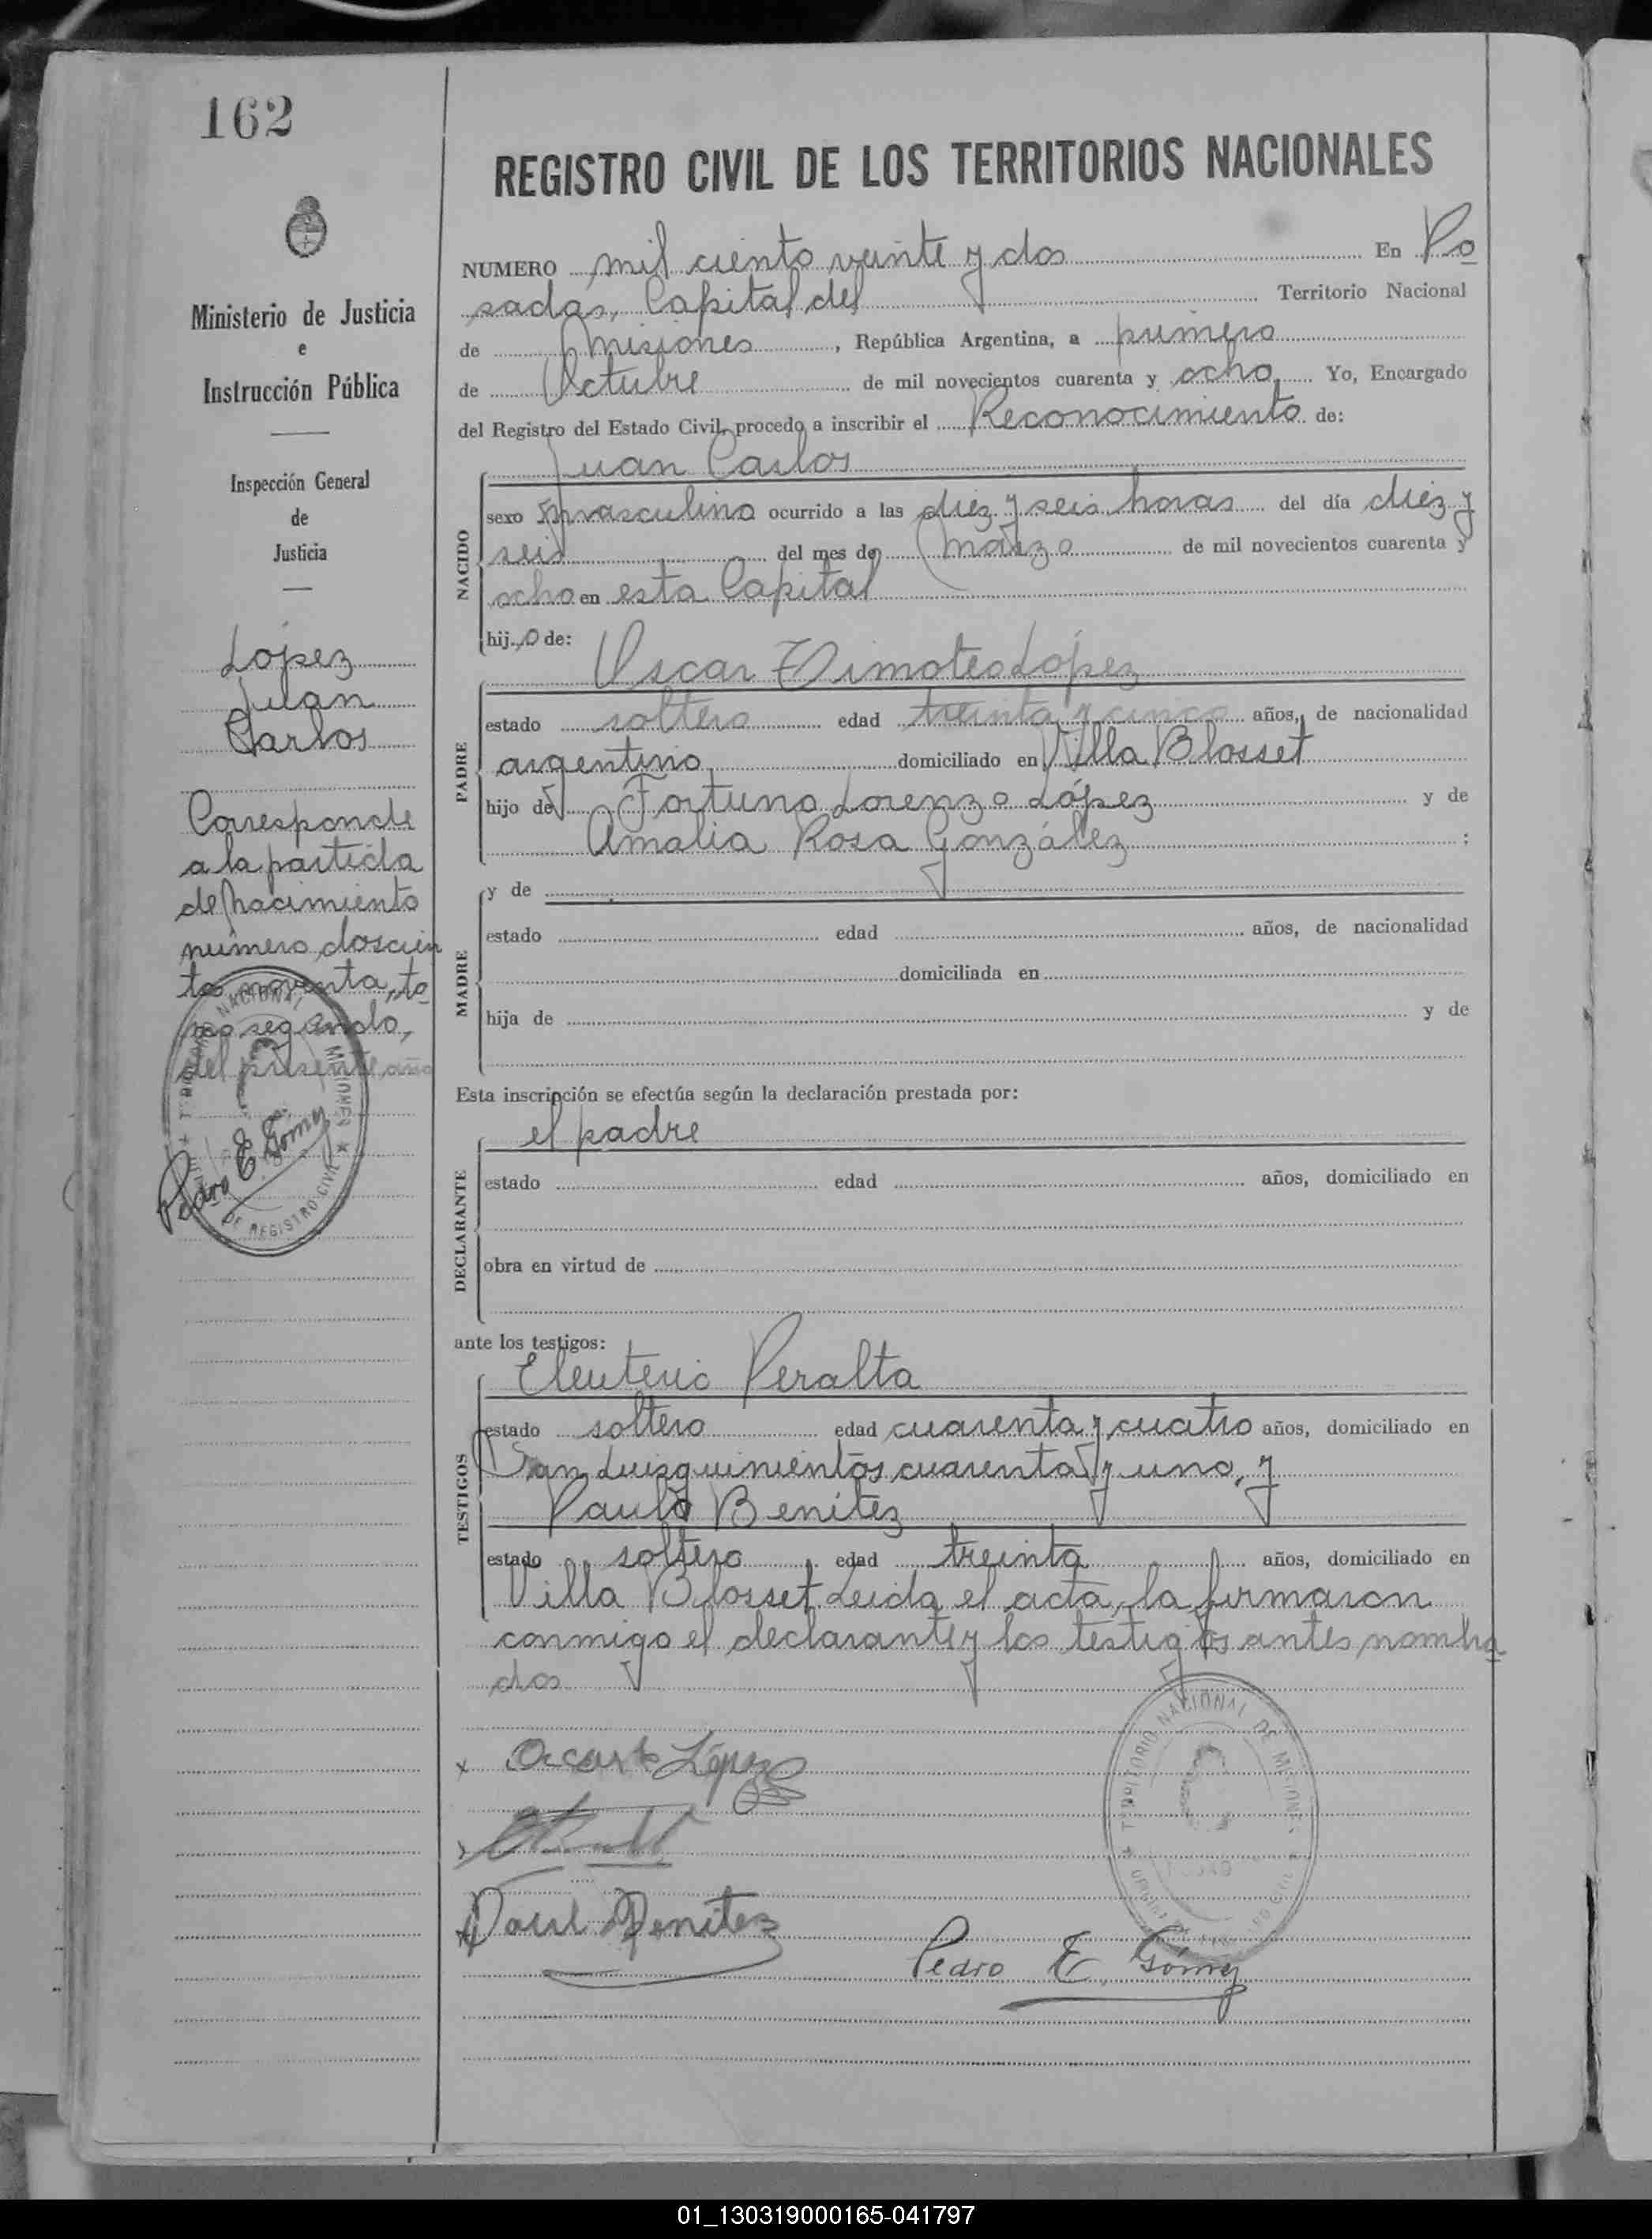 162
Ministerio de Justicia
e
Instrucción Pública
Inspección General
de
Justicia
López
Juan
Carlos
Corresponde
a la partida
de nacimiento
número doscien
tos noventa, to
mo segundo,
del presente año
Pedro E. Gómez
REGISTRO CIVIL DE LOS TERRITORIOS NACIONALES
NUMERO mil ciento veinte y dos En Po
sadas, Capital del Territorio Nacional
de Misiones, República Argentina, a primero
de Octubre de mil novecientos cuarenta y ocho, Yo, Encargado
del Registro del Estado Civil, procedo a inscribir el Reconocimiento de:
Juan Carlos
NACIDO
sexo masculino ocurrido a las diez y seis horas del día diez y
seis del mes de marzo de mil novecientos cuarenta y
ocho en esta Capital
hijo de:
Oscar Timoteo López
PADRE
estado soltero edad treinta y cinco años, de nacionalidad
argentino domiciliado en Villa Blosset
hijo de Fortuno Lorenzo López y de
Amalia Rosa González ;
y de
MADRE
estado edad años, de nacionalidad
domiciliada en
hija de y de
Esta inscripción se efectúa según la declaración prestada por:
el padre
DECLARANTE
estado edad años, domiciliado en
obra en virtud de
ante los testigos:
Eleuterio Peralta
TESTIGOS
estado soltero edad cuarenta y cuatro años, domiciliado en
San Luis quinientos cuarenta y uno, y
Paulo Benítez
estado soltero edad treinta años, domiciliado en
Villa Blosset. Leida el acta, la firmaron
conmigo el declarante y los testigos antes nombra
dos
x Oscar t López
x Paul Benitez
TERRITORIO NACIONAL DE MISIONES
Pedro E. Gómez
01_130319000165-041797